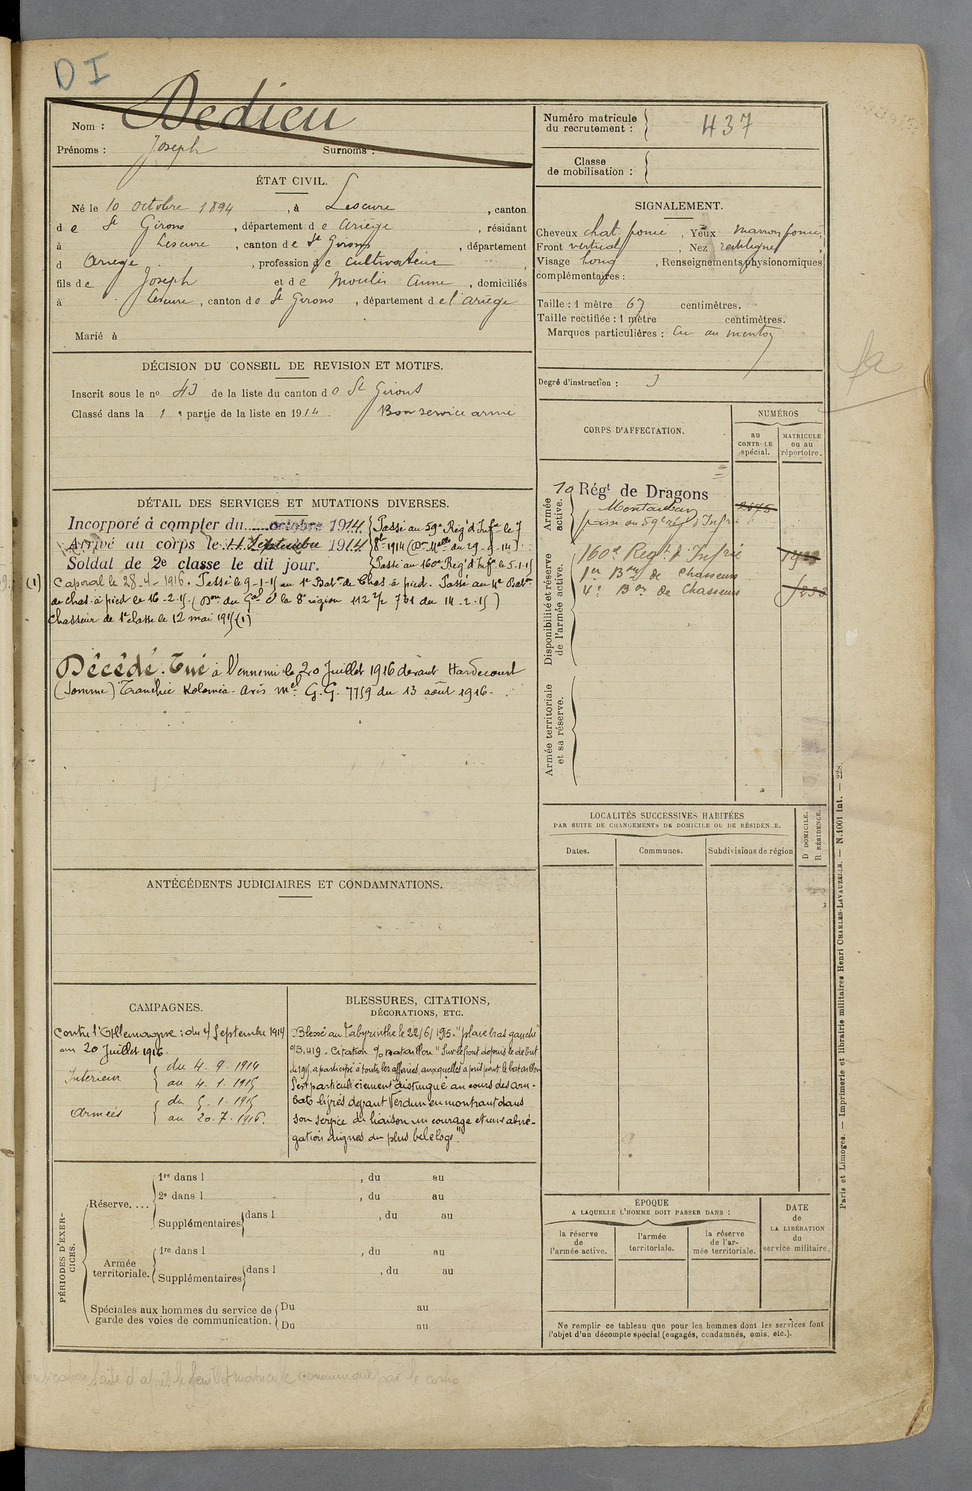 DI
Nom : Dedieu
Prénoms : Joseph Surnoms :
Numéro matricule du recrutement : 437
Classe de mobilisation :
ÉTAT CIVIL.
Né le 10 octobre 1894, à Lescure, canton
de St Girons, département de Ariège, résidant
à Lescure, canton de St Girons, département
d Ariège, profession de cultivateur
fils de Joseph et de Moulis Anne, domiciliés
à Lescure, canton de St Girons, département de l'Ariège
Marié à
SIGNALEMENT.
Cheveux chat. foncé, Yeux marron foncé,
Front vertical, Nez rectiligne
Visage long, Renseignements physionomiques
complémentaires :
Taille : 1 mètre 67 centimètres.
Taille rectifiée : 1 mètre centimètres.
Marques particulières : au menton
Degré d'instruction : 3
DÉCISION DU CONSEIL DE REVISION ET MOTIFS.
Inscrit sous le no 43 de la liste du canton de St Girons
Classé dans la 1e partie de la liste en 1914. Bon service armé
CORPS D'AFFECTATION.
NUMÉROS
au CONTRÔLE spécial.
MATRICULE ou au répertoire.
Armée active.
10 Régt de Dragons
Montauban
passé au 59e regt d'Infrie
Disponibilité et réserve de l'armée active.
160e Regt d'Infrie
1er Bon de Chasseurs
4e Bon de Chasseurs
Armée territoriale et sa réserve.
DÉTAIL DES SERVICES ET MUTATIONS DIVERSES.
Incorporé à compter du octobre 1914 Passé au 59e Rég d'Infie le 7
Arrivé au corps le 11 Septembre 1914 8bre 1914 (Don Mlle du 29-9-14)
Soldat de 2e classe le dit jour. Passé au 160e Reg d'Infie le 5-1-15
(1) Caporal le 28-4-1916. Passé le 9-1-15 au 1er Baton de Chas à pied. Passé au 4e Baton
de chas à pied le 16-2-15 (Don du Gal Ct la 8e région 112 2/r 731 du 14-2-15)
Chasseur de 1re classe le 12 mai 1915 (1)
Décédé. Tué à l'ennemi le 20 Juillet 1916 devant Hardecourt
(Somme) Tranchée Kolomea. Avis mel G.G. 7759 du 13 août 1916.
LOCALITÉS SUCCESSIVES HABITÉES
PAR SUITE DE CHANGEMENTS DE DOMICILE OU DE RÉSIDENCE.
Dates. Communes. Subdivisions de région
D DOMICILE.
R RÉSIDENCE.
ANTÉCÉDENTS JUDICIAIRES ET CONDAMNATIONS.
CAMPAGNES.
Contre l'Allemagne : du 4 Septembre 1914
au 20 Juillet 1916.
Intérieur du 4.9.1914
au 4.1.1915
Armées du 5.1.1915
au 20.7.1916.
BLESSURES, CITATIONS,
DÉCORATIONS, ETC.
Blessé au Labyrinthe le 22/6/1915. "plaie bras gauche"
Citation o/ Bataillon "Sur le front depuis le début
de 1915, a participé à toutes les affaires auxquelles a pris part le bataillon
S'est particulièrement distingué au cours des com-
bats livrés devant Verdun en montrant dans
son service de liaison un courage et une abné-
gation dignes du plus bel éloge."
PÉRIODES D'EXERCICES.
Réserve....
1re dans l , du au
2e dans l , du au
Supplémentaires dans l , du au
Armée territoriale.
1re dans l , du au
Supplémentaires dans l , du au
Spéciales aux hommes du service de garde des voies de communication.
Du au
Du au
ÉPOQUE
A LAQUELLE L'HOMME DOIT PASSER DANS :
la réserve de l'armée active.
l'armée territoriale.
la réserve de l'armée territoriale.
DATE de LA LIBÉRATION du service militaire.
Ne remplir ce tableau que pour les hommes dont les services font
l'objet d'un décompte spécial (engagés, condamnés, omis, etc.).
Paris et Limoges. — Imprimerie et librairie militaires Henri CHARLES-LAVAUZELLE. — N. 1001 Int. — 228.
faite d'après le feuillet matricule communiqué par le corps